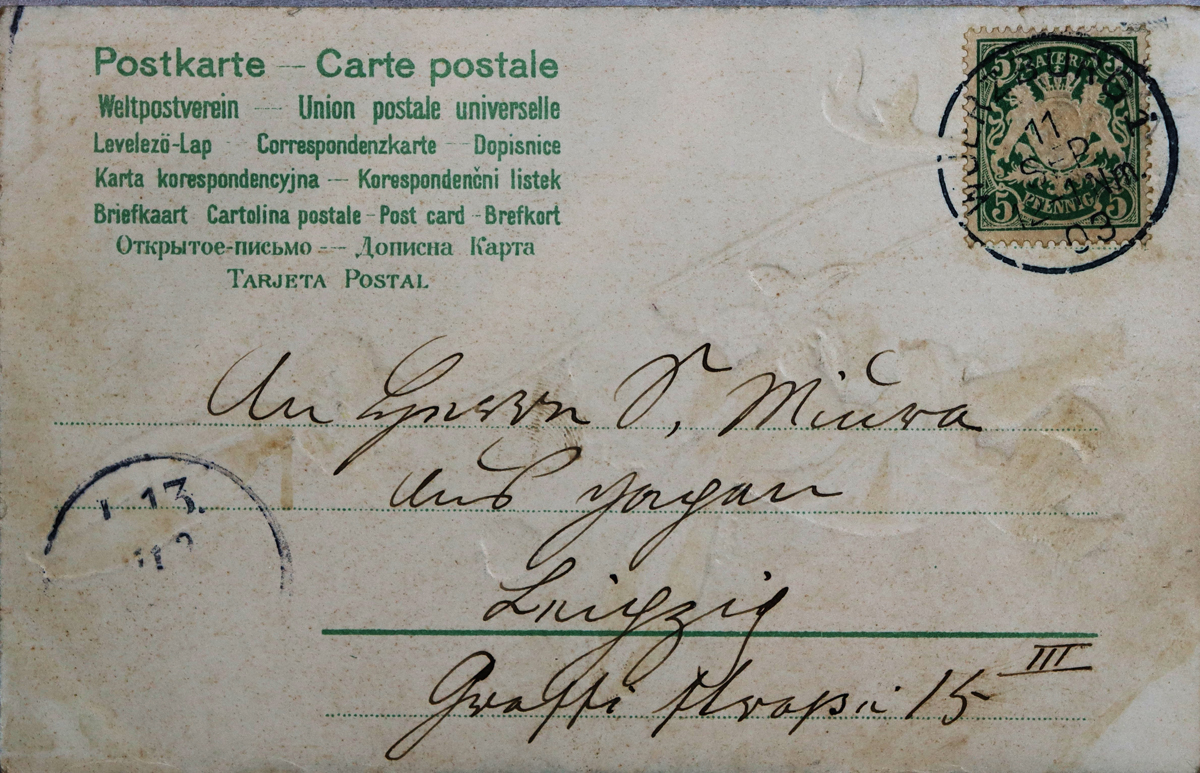 Postkarte — Carte postale
Weltpostverein — Union postale universelle
Levelezö-Lap - Correspondenzkarte - Dopisnice
Karta korespondencyjna — Korespondenčni listek
Briefkaart Cartolina postale - Post card - Brefkort
Открытое-письмо --- Дописна Карта
TARJETA POSTAL
BAYERN
5 5
PFENNIG
5 5
WUERZBURG 1
11
SEP
Nm.
03
An Herrn S. Miura
aus Japan
13.
Leipzig
III
Grassi strasse 15